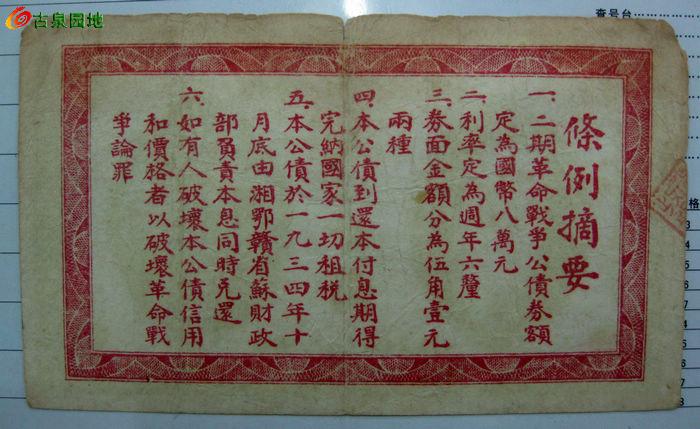 古泉园地
查号台
條例摘要
一、二期革命戰爭公債券額
定為國幣八萬元
二、利率定為週年六釐
三、券面金額分為伍角壹元
兩種
四、本公債到還本付息期得
完納國家一切租税
五、本公債於一九三四年十
月底由湘鄂贛省蘇財政
部負責本息同時兑還
六、如有人破壞本公債信用
和價格者以破壞革命戰
爭論罪
格